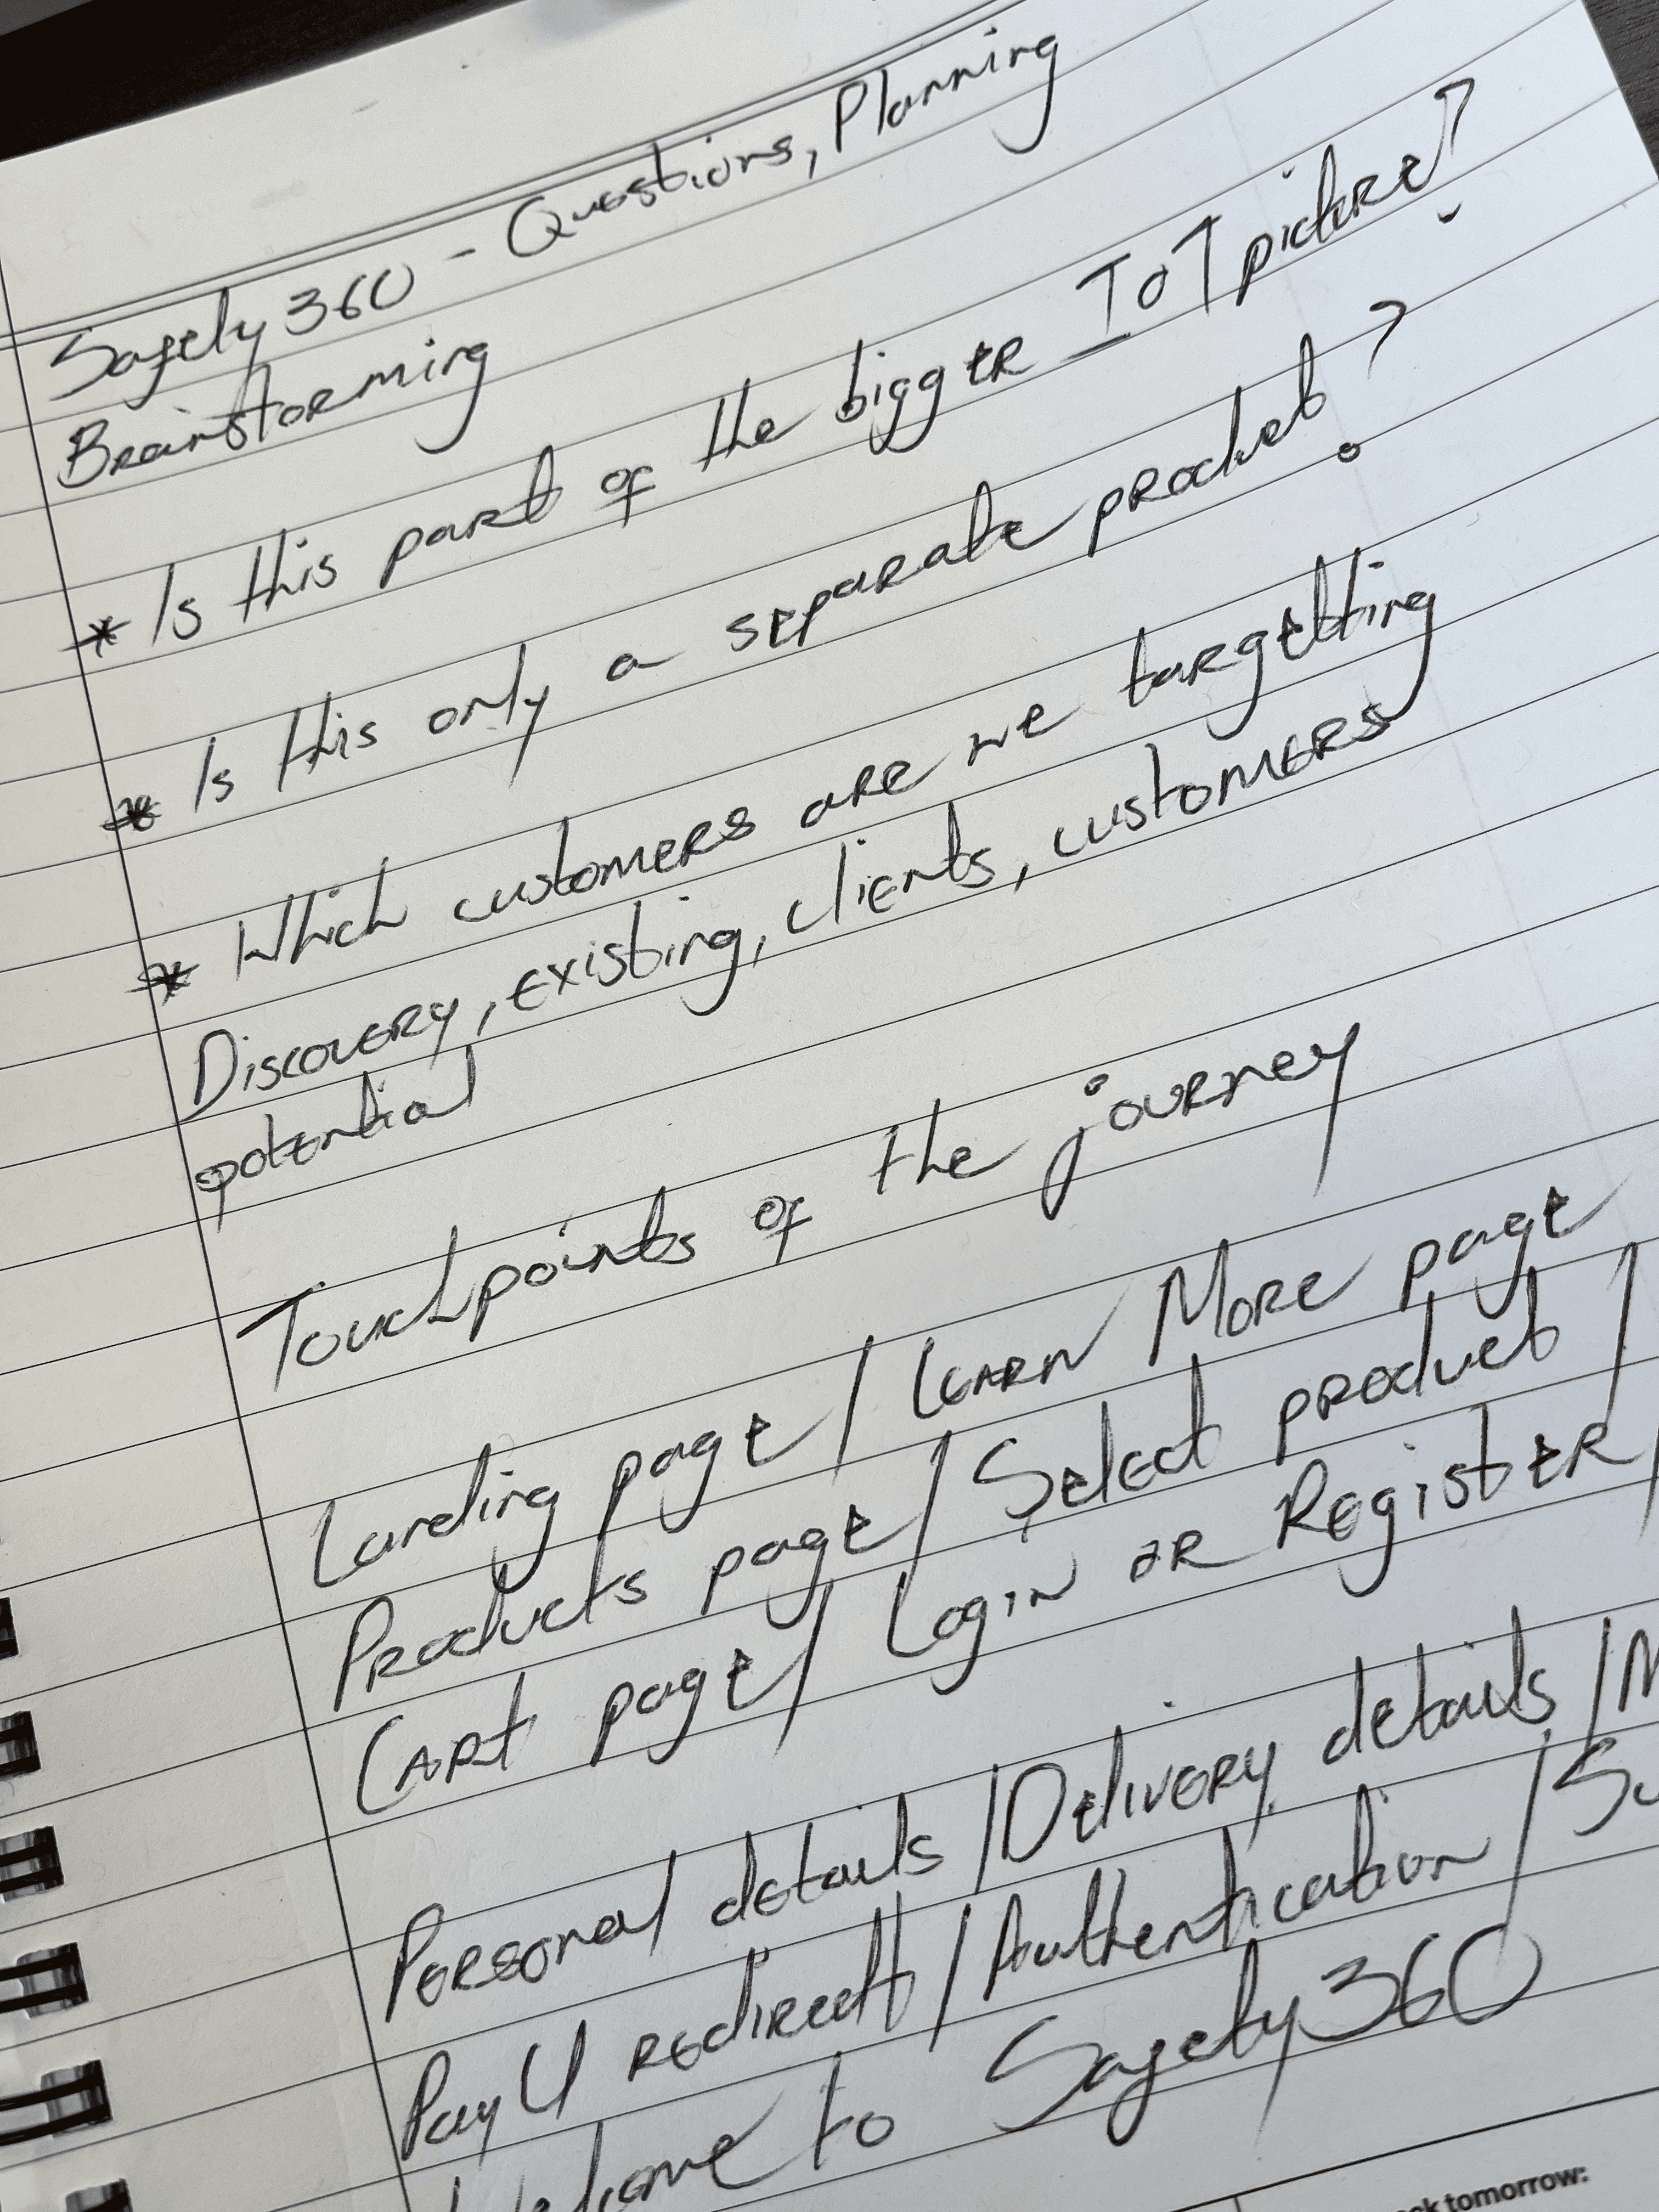 Safety 360 - Questions, Planning
Brainstorming
* Is this part of the bigger IoT picture?
* Is this only a separate product?
* Which customers are we targetting
Discovery, existing, clients, customers
potential
Touchpoints of the journey
Landing page / Learn More page
Products page / Select product /
Cart page / Login or Register /
Personal details / Delivery details / M
PayU redirect / Authentication / Su
Welcome to Safety360
tomorrow: